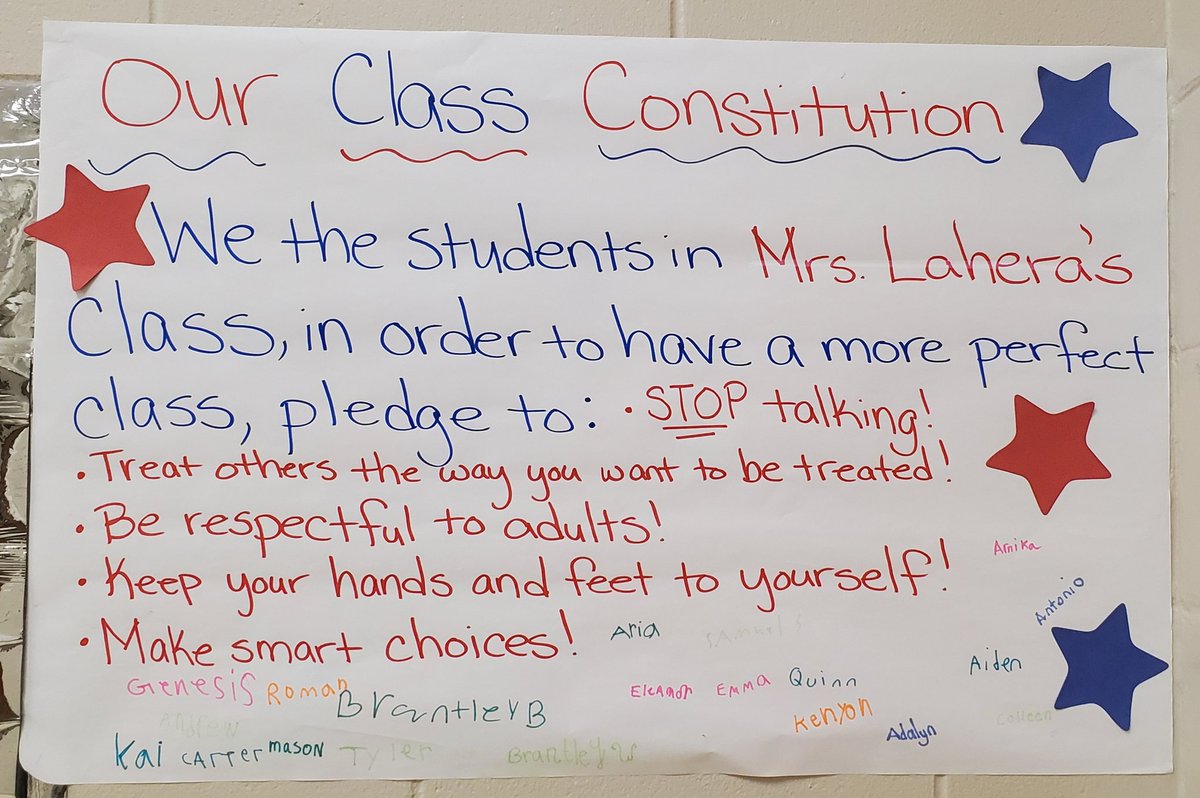 Our Class Constitution
We the students in Mrs. Lahera's
Class, in order to have a more perfect
class, pledge to: • STOP talking!
• Treat others the way you want to be treated!
• Be respectful to adults!
• Keep your hands and feet to yourself!
• Make smart choices!
Arnika
Antonio
Aria
Aiden
Genesis Roman Brantley B Eleanor Emma Quinn
Andrew Kenyon Adalyn Colleen
Kai Carter mason Tyler Brantley W